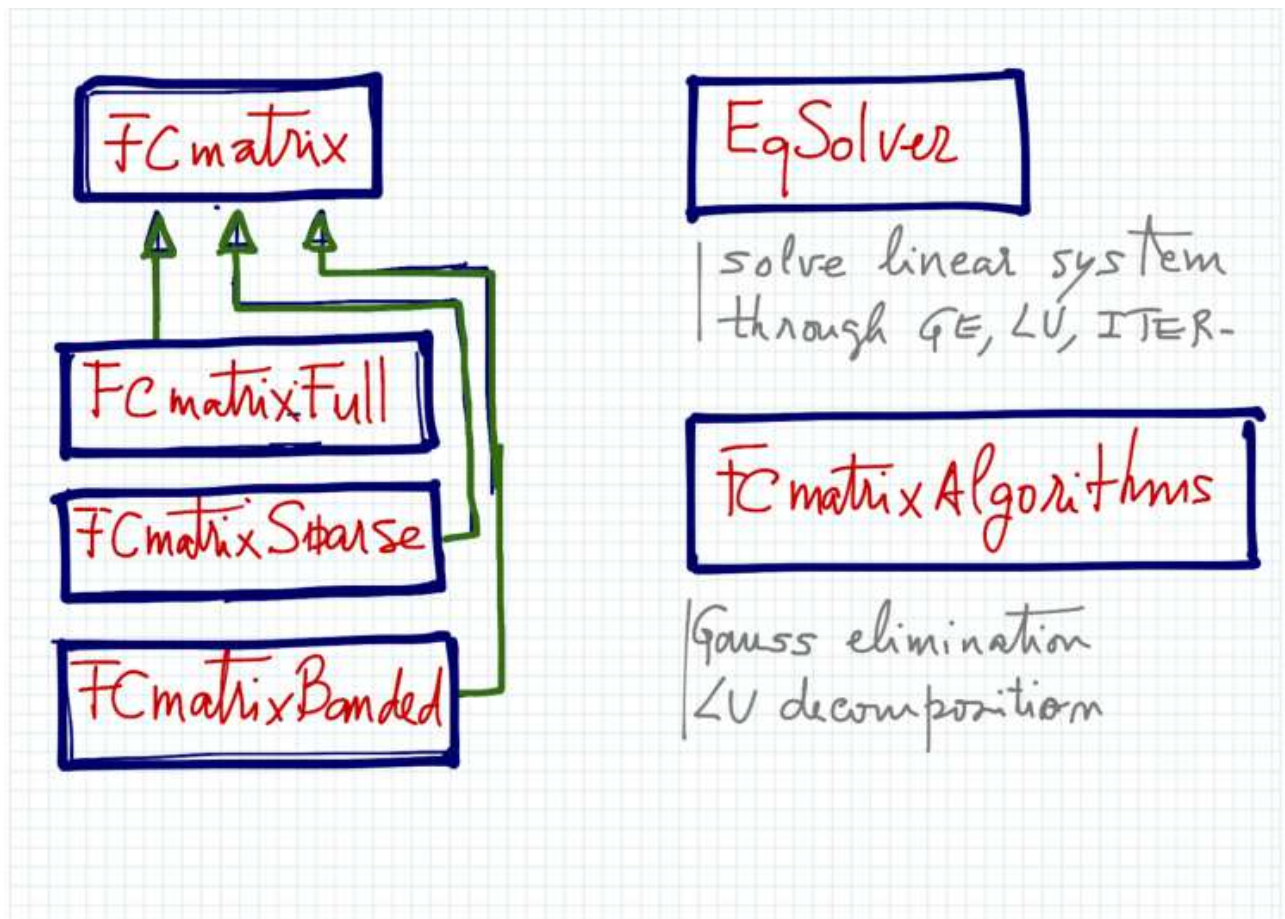 FCmatrix
FCmatrixFull
FCmatrixSparse
FCmatrixBanded
EqSolver
solve linear system
through GE, LU, ITER-
FCmatrixAlgorithms
Gauss elimination
LU decomposition